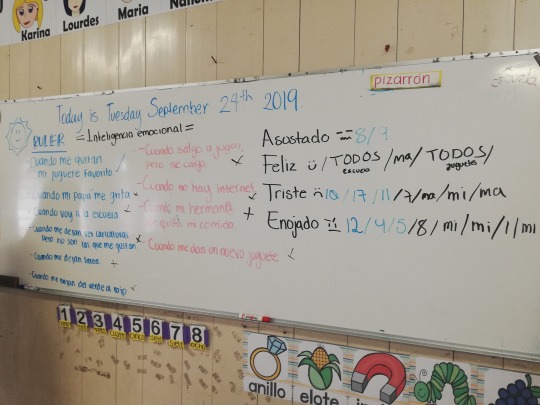 Karina
Lourdes
Maria
Today is Tuesday September 24th 2019.
pizarrón
escuela
RULER
=Inteligencia emocional=
Cuando me quitan
mi juguete favorito
Cuando mi papá me grita
Cuando voy a la escuela
Cuando me dejan ver caricaturas
pero no son las que me gustan
-Cuando me dejan tarea
Cuando me cambian del verde al rojo
-Cuando salgo a jugar,
pero me caigo.
-Cuando no hay internet
mi herman@
mi comida.
-Cuando me dan un nuevo juguete
Asustado 8/9
Feliz / TODOS / ma / TODOS /
escuela juguete
Triste 10 / 17 / 11 / 7 / ma / mi / ma
Enojado 12 / 4 / 5 / 8 / mi / mi / 1 / mi
1 2 3 4 5 6 7 8
uno dos tres cuatro cinco seis siete ocho
anillo
elote